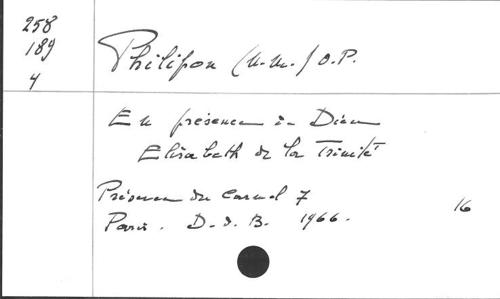 258
189
4
Philipon (M.M.) O.P.
En présence de Dieu
Elisabeth de la Trinité
Présence du Carmel 7
Paris. D.d.B. 1966.
16